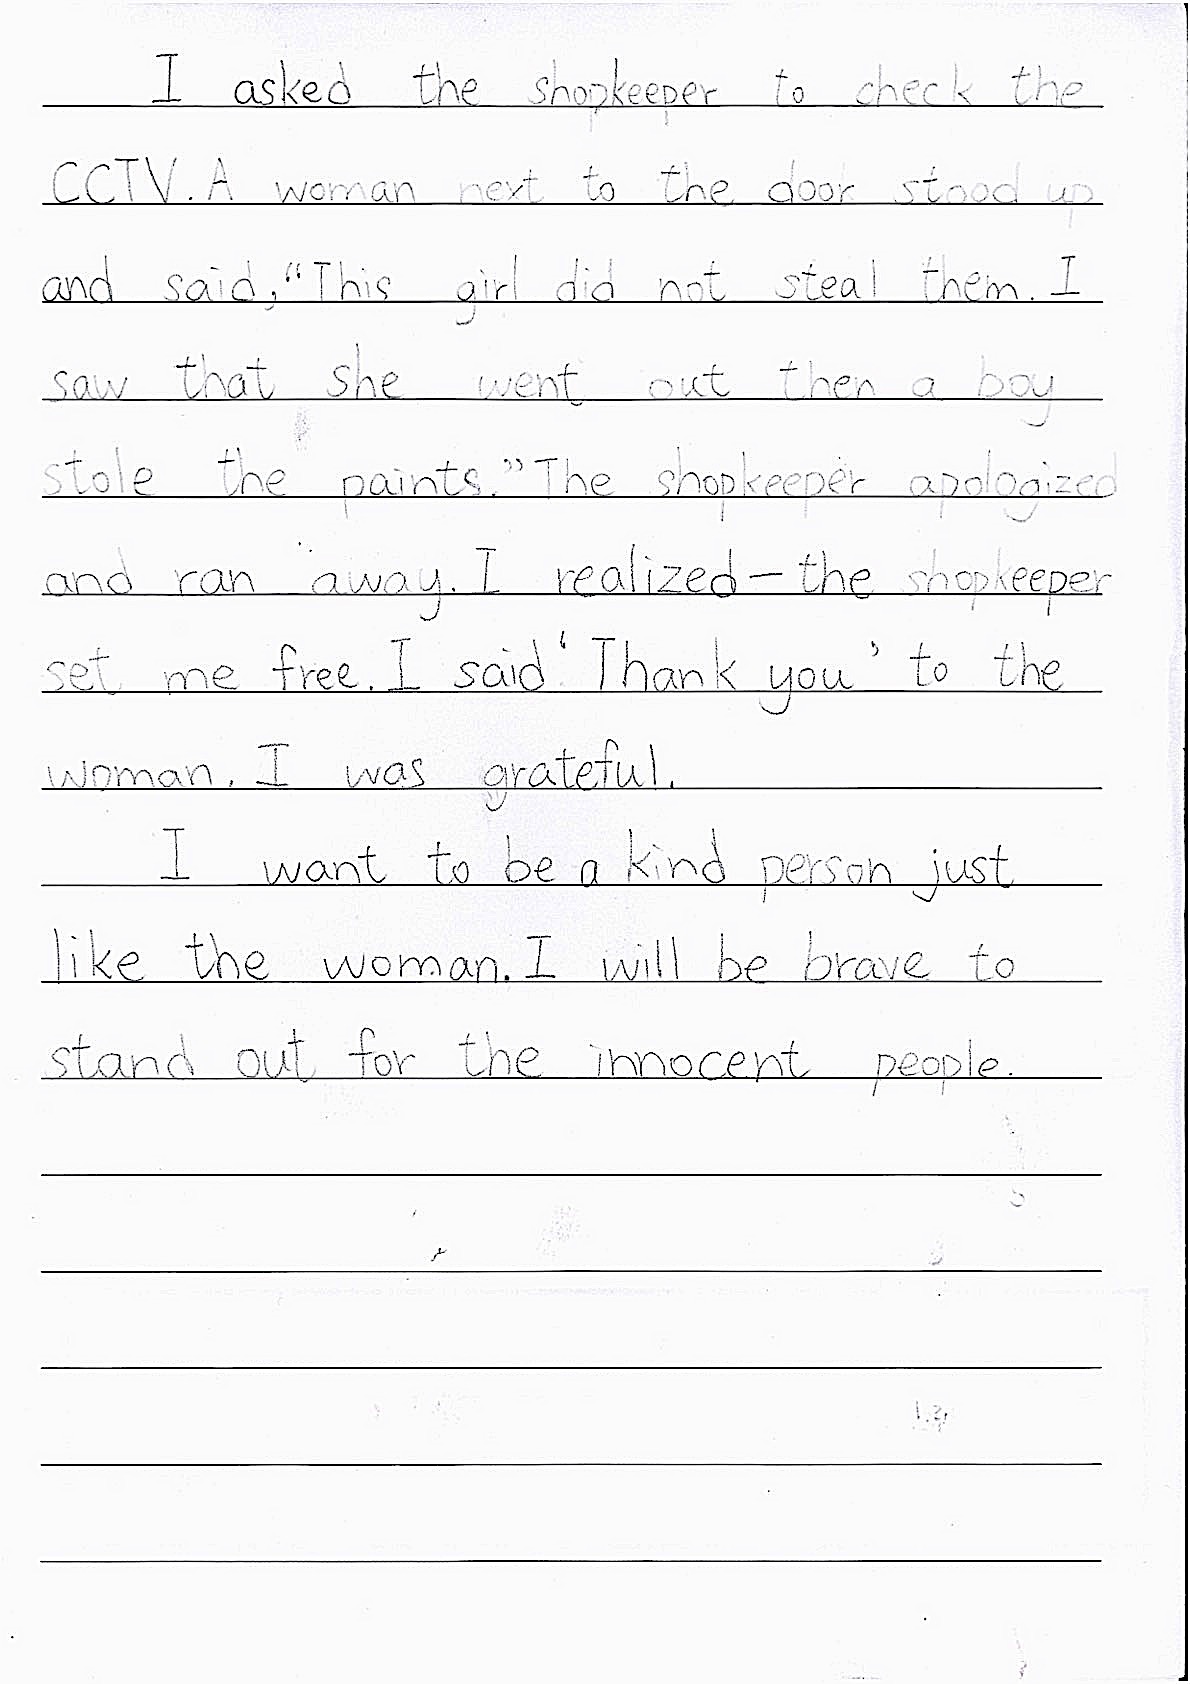 I asked the shopkeeper to check the
CCTV. A woman next to the door stood up
and said, "This girl did not steal them. I
saw that she went out then a boy
stole the paints." The shopkeeper apologized
and ran away. I realized — the shopkeeper
set me free. I said 'Thank you' to the
woman. I was grateful.
I want to be a kind person just
like the woman. I will be brave to
stand out for the innocent people.